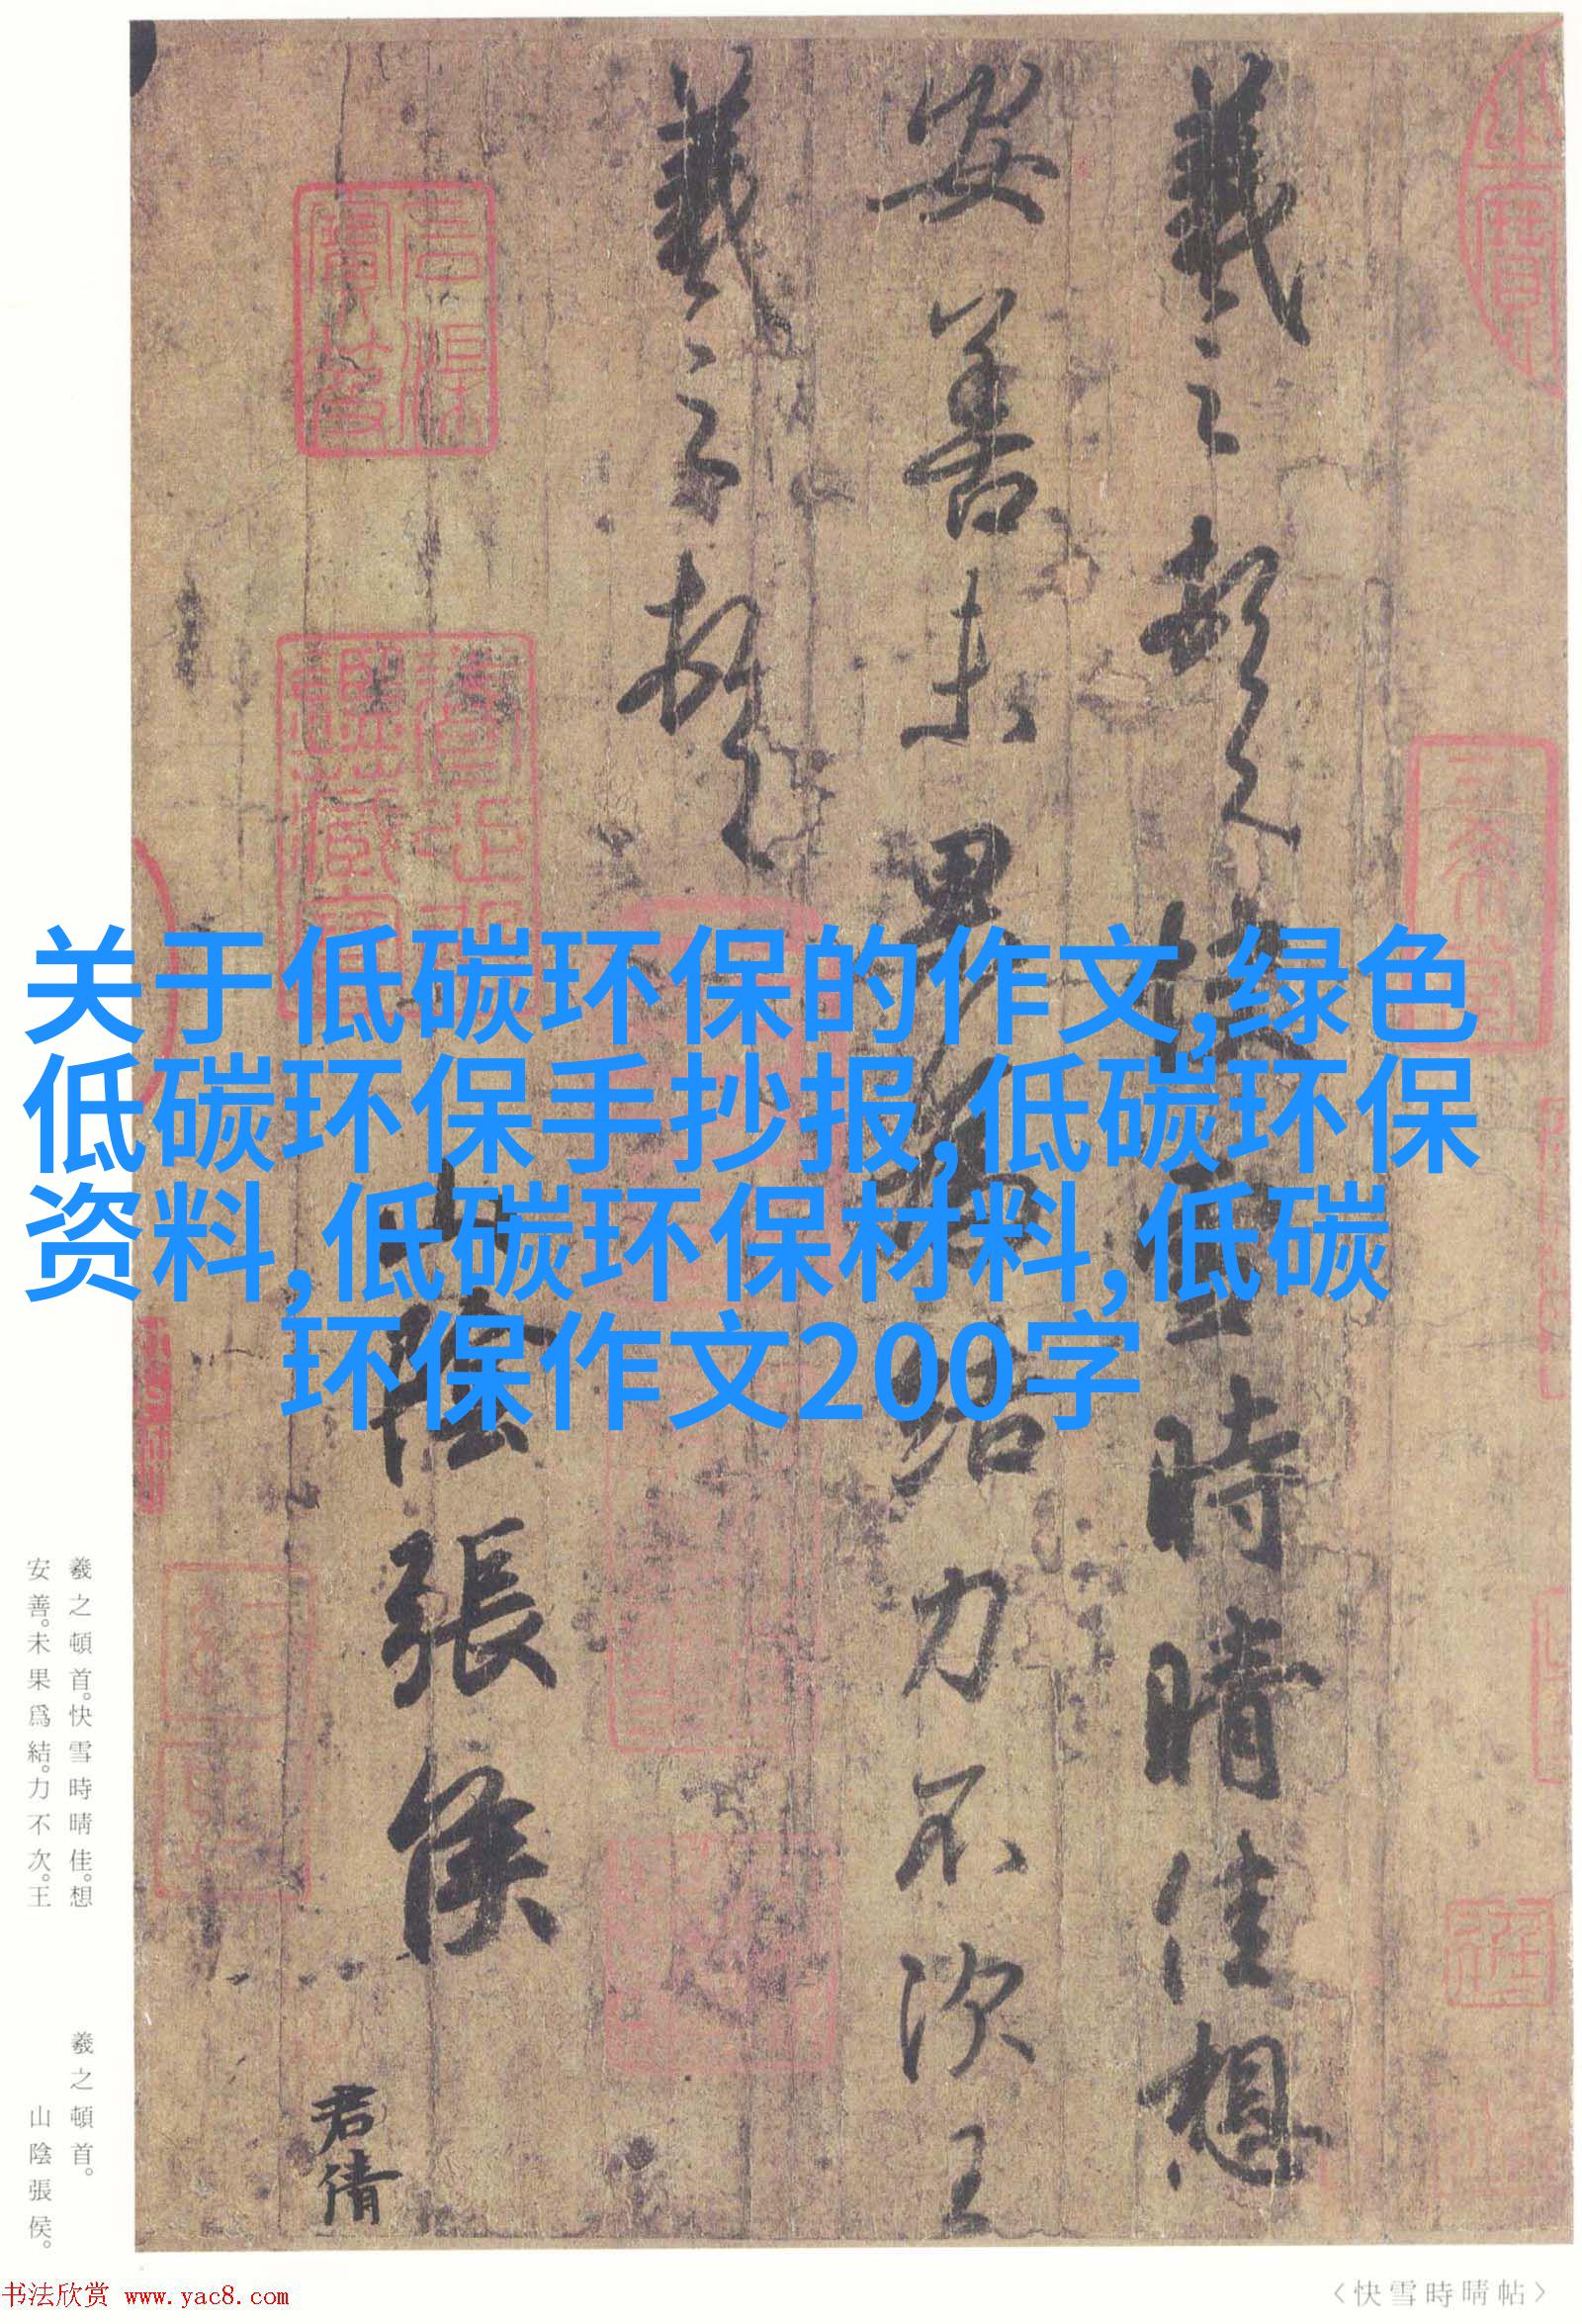 羲之頓首快雪時晴佳想
安善未果為結力不次王
羲之頓首
山陰張侯
君倩
关于低碳环保的作文,绿色
低碳环保手抄报,低碳环保
资料,低碳环保材料,低碳
环保作文200字
羲之頓首。快雪時晴佳。想
安善。未果爲結。力不次。王
羲之頓首。
山陰張侯。
书法欣赏 www.yac8.com
〈快雪時晴帖〉